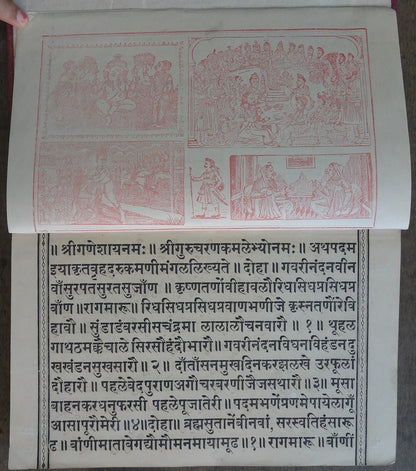 ॥ श्रीगणेशायनमः ॥ श्रीगुरुचरणकमलेभ्योनमः ॥ अथपदम
इयाकृतबृहदरुकमणीमंगललिख्यते ॥ दोहा ॥ गवरीनंदनवीन
वाँसुरपतसुरतसुजाँण ॥ कृष्णतणोंवीहावलौंरिधसिधप्रसिधप्रवाँ
बाँण ॥ रागमारू ॥ रिधसिधप्रसिधप्रवाणभणीजै कृस्नतणोंरेवि
हावौ ॥ सुंडाडंवरसीसचंद्रमा लालालौचनवारौ ॥ १ ॥ थूहल
गाथठमकैचाले सिरसौहंदौभारौ ॥ गवरीनंदनविघनविहंडनदु
खखंडनसुखसारौ ॥ २ ॥ दाँताँसनमुखदिनकरझलखे उरफूलाँ
दौहारौ ॥ पहलेवेदपुराणअगौचरबरणीजैजसथारौ ॥३॥ मूसा
बाहनकरधनुफरसी पहलेपूजातेरी ॥ पदमभणेंप्रणमेपायेलागूँ
आसापूरौमेरी ॥४॥ दोहा ॥ ब्रह्मसुतानेंवीनवाँ, सरस्वतिहंसारू
ढ ॥ बाँणीमातावेगद्यौमौमनमायामूढ ॥१॥ रागमारू ॥ बाँणीं